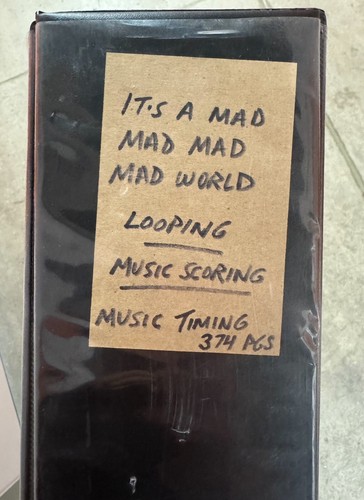 IT'S A MAD
MAD MAD
MAD WORLD
LOOPING
MUSIC SCORING
MUSIC TIMING
374 PGS